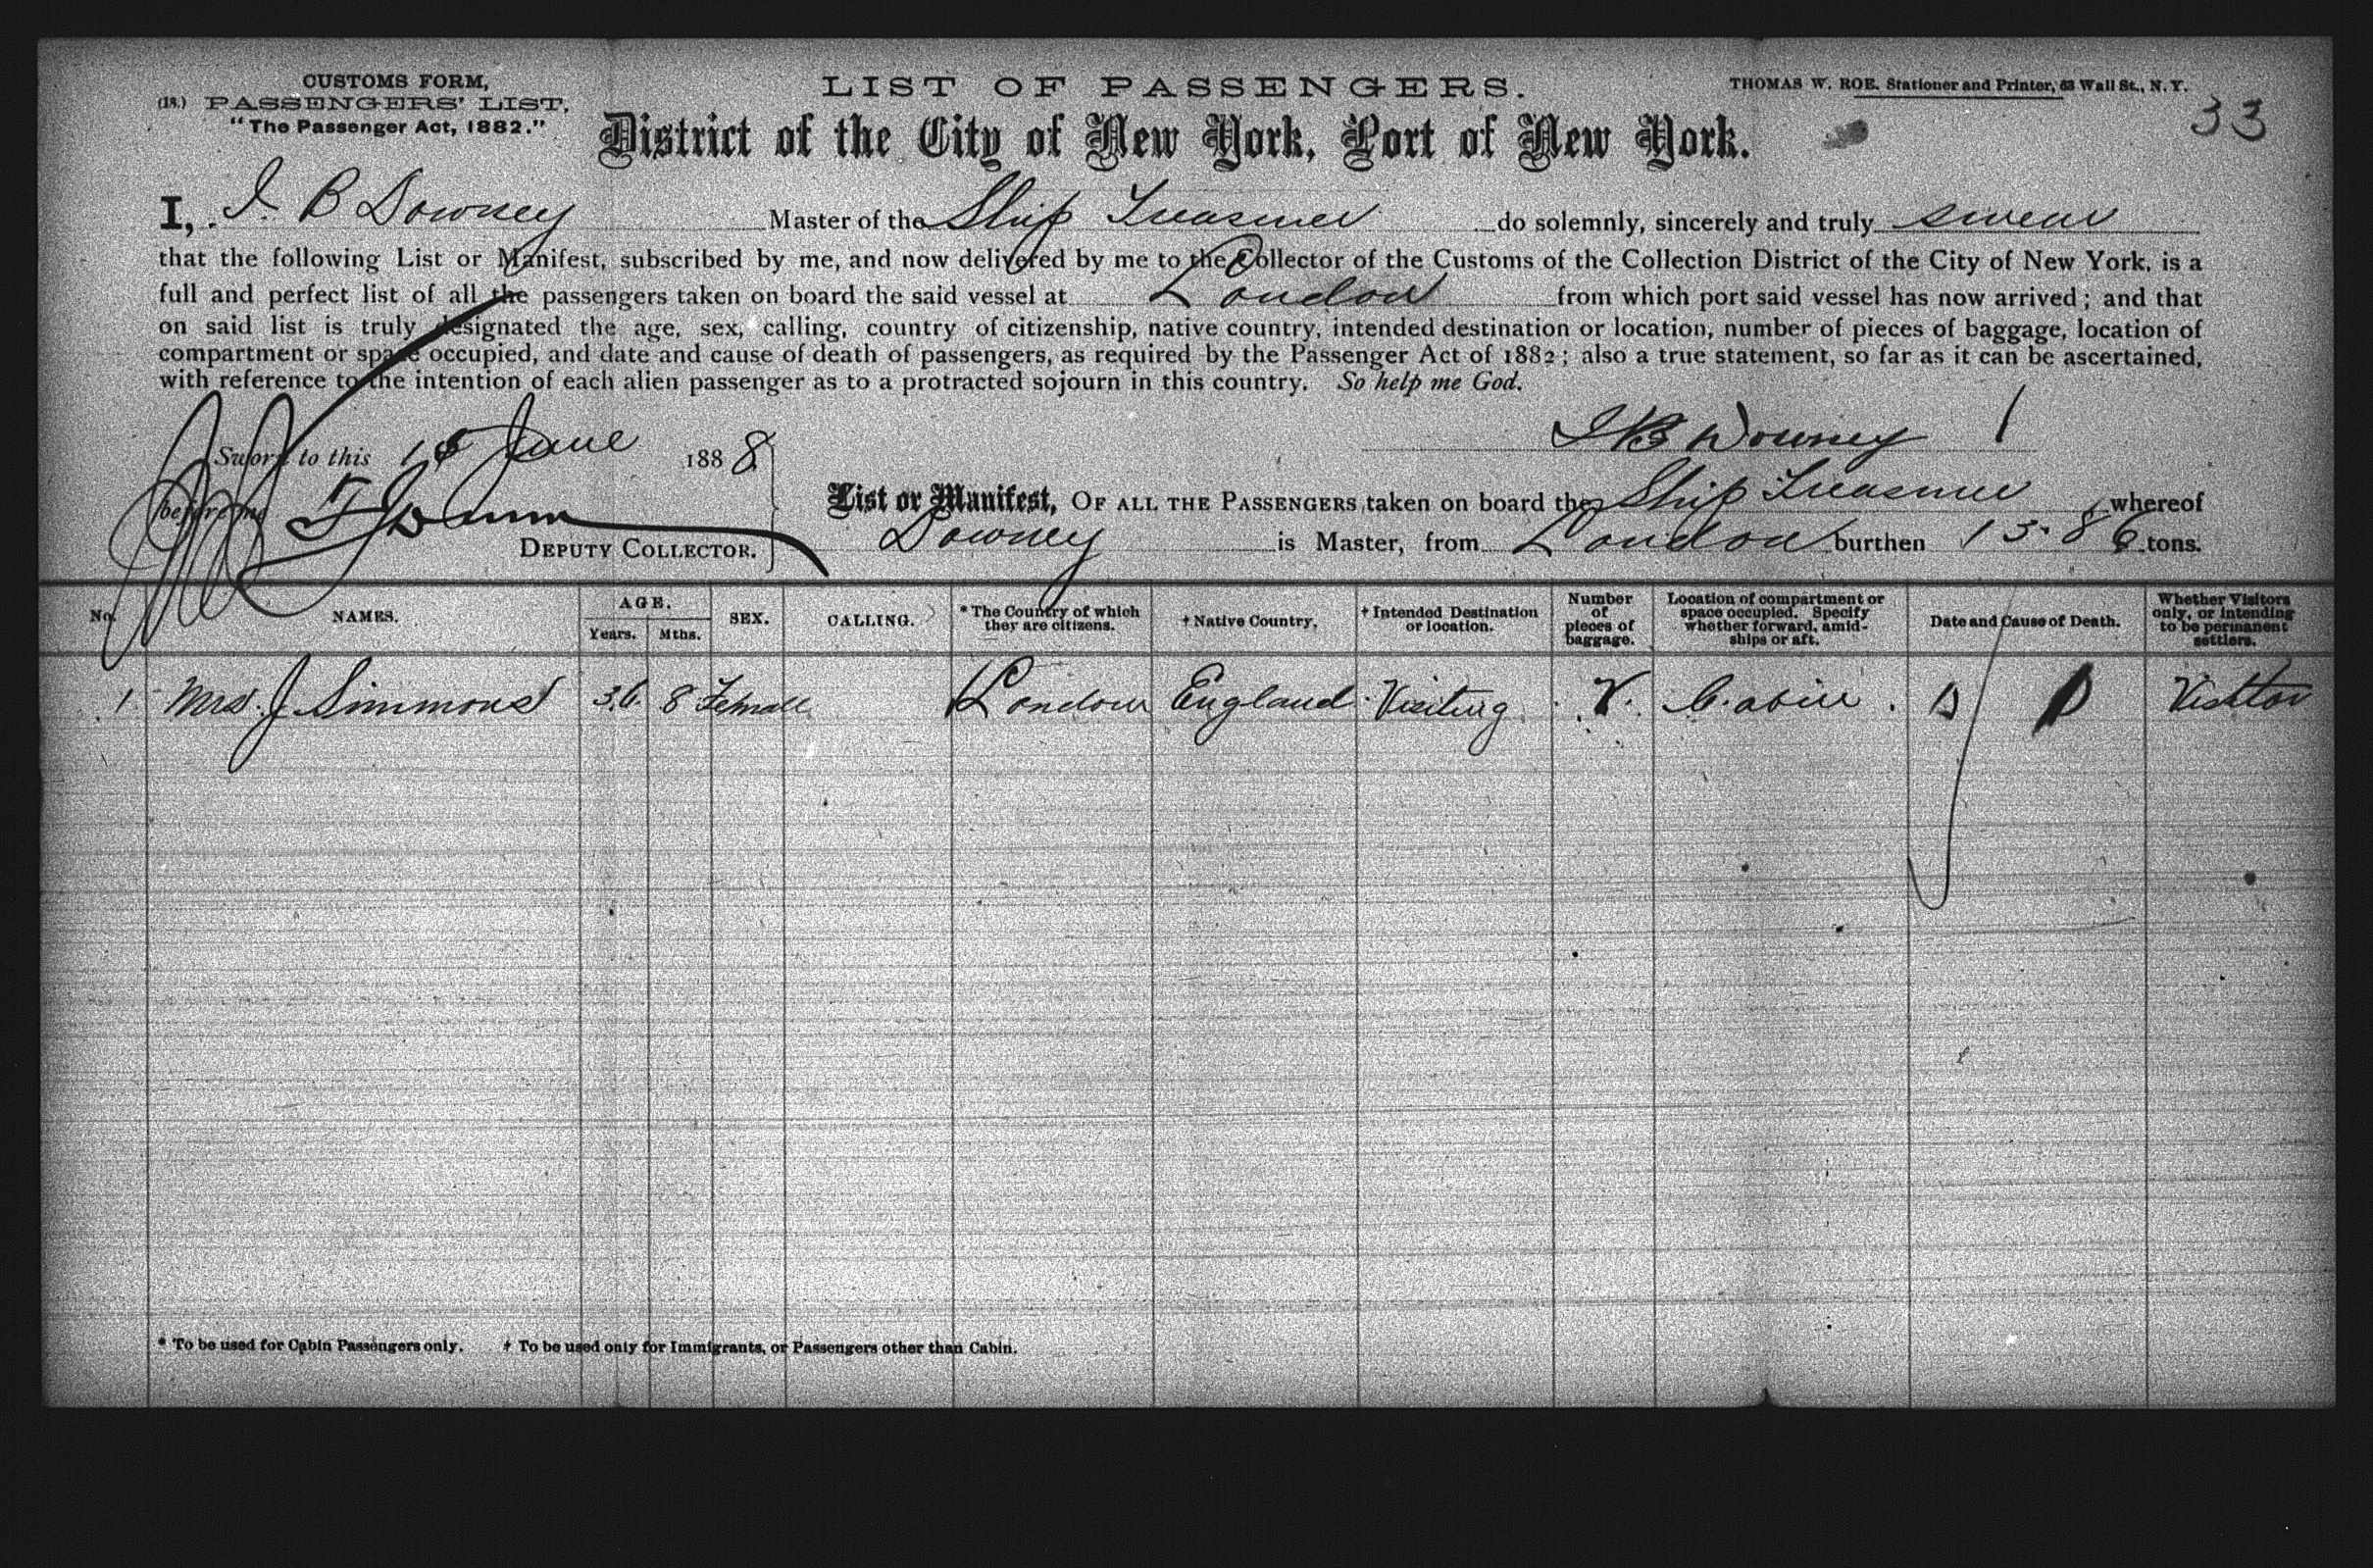 CUSTOMS FORM,
(18.) PASSENGERS' LIST,
"The Passenger Act, 1882."
LIST OF PASSENGERS.
THOMAS W. ROE, Stationer and Printer, 63 Wall St., N. Y.
33
District of the City of New York, Port of New York.
I, J. B Downey Master of the Ship Treasurer do solemnly, sincerely and truly swear
that the following List or Manifest, subscribed by me, and now delivered by me to the Collector of the Customs of the Collection District of the City of New York, is a
full and perfect list of all the passengers taken on board the said vessel at London from which port said vessel has now arrived; and that
on said list is truly designated the age, sex, calling, country of citizenship, native country, intended destination or location, number of pieces of baggage, location of
compartment or space occupied, and date and cause of death of passengers, as required by the Passenger Act of 1882; also a true statement, so far as it can be ascertained,
with reference to the intention of each alien passenger as to a protracted sojourn in this country. So help me God.
J B Downey
Sworn to this June 1888
before me
DEPUTY COLLECTOR.
List or Manifest, OF ALL THE PASSENGERS taken on board the Ship Treasurer whereof
Downey is Master, from London burthen 1386 tons.
No. NAMES. AGE. Years. Mths. SEX. CALLING. * The Country of which they are citizens. † Native Country. † Intended Destination or location. Number of pieces of baggage. Location of compartment or space occupied. Specify whether forward, amidships or aft. Date and Cause of Death. Whether Visitors only, or intending to be permanent settlers.
1 Mrs. J Simmons 36 8 Female London England Visiting Cabin Visitor
* To be used for Cabin Passengers only. † To be used only for Immigrants, or Passengers other than Cabin.